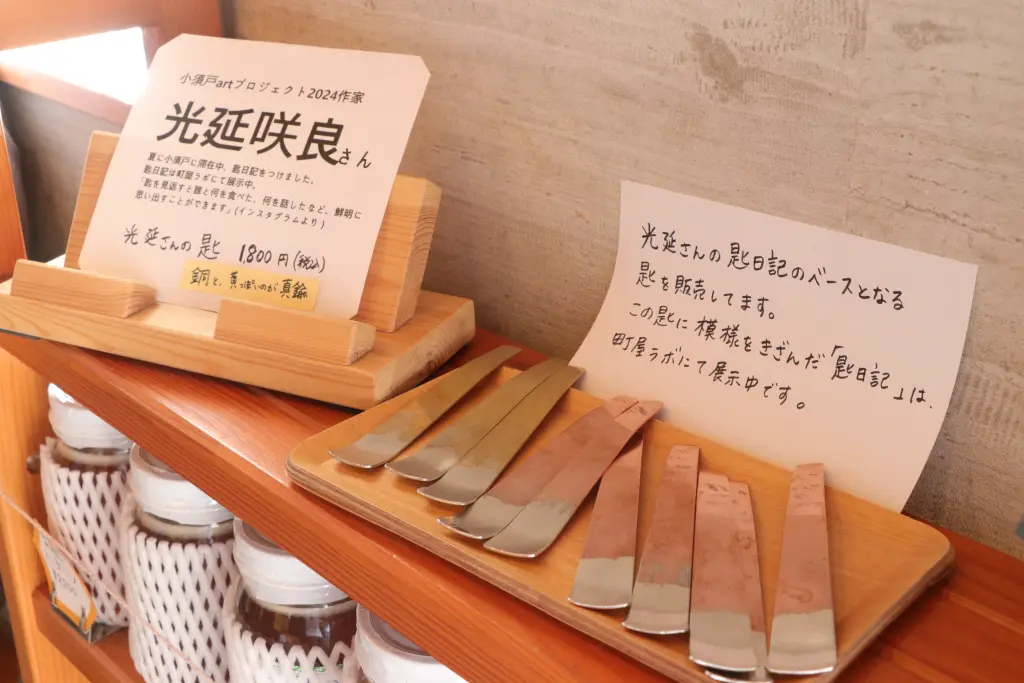 小須戸artプロジェクト2024作家
光延咲良さん
夏に小須戸に滞在中、匙日記をつけました。
匙日記は町屋ラボにて展示中。
「匙を見返すと誰と何を食べた、何を話したなど、鮮明に
思い出すことができます」(インスタグラムより)
光延さんの匙 1,800円(税込)
銅と、黄っぽいのが真鍮。
光延さんの匙日記のベースとなる
匙を販売してます。
この匙に模様をきざんだ「匙日記」は、
町屋ラボにて展示中です。